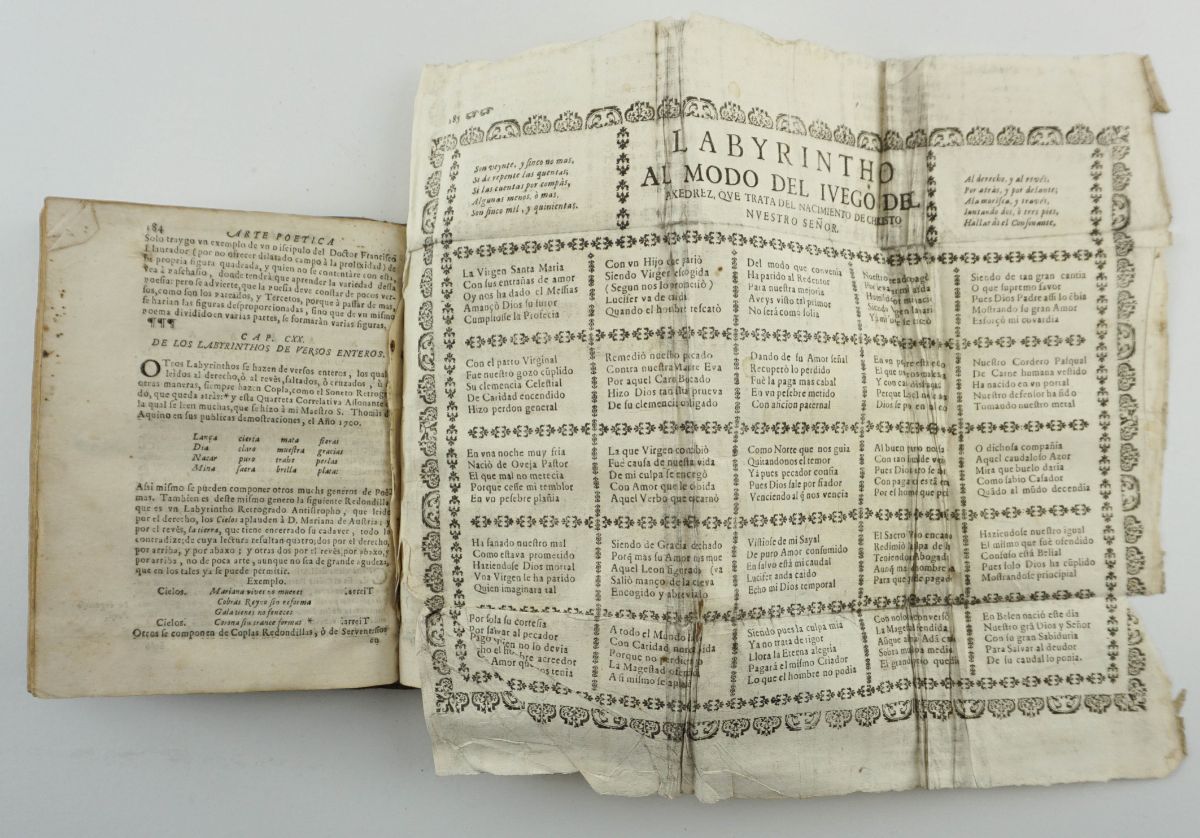 184 ARTE POETICA
Solo traygo vn exemplo de vn Discipulo del Doctor Francisco
Llaurador (por no ofrecer dilatado campo à la prolixidad) de
su propria figura quadrada, y quien no se contentàre con esta,
vea à Paschasio, donde tendrà que aprender la variedad desta
poesia: pero se advierte, que la poesia deve constar de pocos ver-
sos, como son los Pareados, y Tercetos, porque à passar de mas,
se harian las figuras desproporcionadas, sino que de vn mismo
poema dividido en varias partes, se formaràn varias figuras.
¶¶¶
CAP. CXX.
DE LOS LABYRINTHOS DE VERSOS ENTEROS.
OTros Labyrinthos se hazen de versos enteros, los quales
leidos al derecho, ò al revès, saltados, ò cruzados, ù
otras maneras, siempre hazen Copla, como el Soneto Retrogra-
do, que queda atràs: * y esta Quarteta Correlativa Assonante
la qual se leen muchas, que se hizo à mi Maestro S. Thomàs d
Aquino en sus publicas demostraciones, el Año 1700.
Lança cierta mata fieras
Dia claro muestra gracias
Nacar puro trahe perlas
Mina sacra brilla plata:
Assi mismo se pueden componer otros muchs generos de Poë-
mas. Tambien es deste mismo genero la siguiente Redondilla
que es vn Labyrintho Retrogrado Antistropho, que leido
por el derecho, los Cielos aplauden à D. Mariana de Austria; y
por el revès, la tierra, que tiene encerrado su cadaver, todo lo
contradize; de cuya lectura resultan quatro; dos por el derecho,
por arriba, y por abaxo; y otras dos por el revès; por abaxo, y
por arriba, no de poca arte, aunque no sea de grande agudeza,
que en los tales ya se puede permitir.
Exemplo.
Cielos. Mariana vives no mueres Tierra.
Cobras Reyno sin reforma
Gala tienes no feneces
Cielos. Corona sin trance formas * Tierra.
Otros se componen de Coplas Redondillas, ò de Serventesios
en
185
Son veynte, y sinco no mas,
Si de repente las quentas;
Si las cuentas por compàs,
Algunas menos, ò mas,
Son sinco mil, y quinientas.
LABYRINTHO
AL MODO DEL IVEGO DEL
AXEDREZ, QVE TRATA DEL NACIMIENTO DE CHRISTO
NVESTRO SEÑOR.
Al derecho, y al revès,
Por atràs, y por delante;
A la morisca, y travès,
Iuntando dos, ò tres pies,
Hallaràs el Consonante,
La Virgen Santa Maria
Con sus entrañas de amor
Oy nos ha dado el Messias
Amançò Dios su furor
Cumpliose la Profecia
Con vn Hijo que pariò
Siendo Virgen escogida
(Segun nos lo pronunciò)
Lucifer va de caida
Quando el hombre rescatò
Del modo que convenia
Ha parido al Redentor
Para nuestra mejoria
Aveys visto tal primor
No serà como solia
Nuestro
Por le
Humild
Siendo
Ya mi
Siendo de tan gran cantia
O que supremo favor
Pues Dios Padre assi lo ēbia
Mostrando su gran Amor
Esforçò mi covardia
Con el parto Virginal
Fue nuestro gozo cūplido
Su clemencia Celestial
De Caridad encendido
Hizo perdon general
Remediò nuestro pecado
Contra nuestra Madre Eva
Por aquel Caro Bocado
Hizo Dios tan alta prueva
De su clemencia obligado
Dando de su Amor señal
Recuperò lo perdido
Fuè la paga mas cabal
En vn pesebre metido
Con ancion paternal
En vn pe
El que
Y con cari
Porque
Dios se pu
Nuestro Cordero Pasqual
De Carne humana vestido
Ha nacido en vn portal
Nuestro defensor ha sido
Tomando nuestro metal
En vna noche muy fria
Naciò de Oveja Pastor
El que mal no metecia
Porque cesse mi temblor
En vn pesebre plañia
La que Virgen concibiò
Fuè causa de nuestra vida
De mi culpa se encargò
Con Amor que le obida
Aquel Verbo que encarnò
Como Norte que nos guia
Quitandonos el temor
Yà pues pecador confia
Pues Dios sale por fiador
Venciendo al q̄ nos vencia
Al buen puer
Con tan
Pues Dios
Con paga
Por el hombre
O dichosa compañia
Aquel caudaloso Azor
Mira que buelo daria
Como sabio Casador
Quādo al mūdo decendia
Ha sanado nuestro mal
Como estava prometido
Haziendose Dios mortal
Vna Virgen le ha parido
Quien imaginara tal
Siendo de Gracia dechado
Porq̄ mas su Amor nos mue
Aquel Leon figurado (va
Saliò manço de la cueva
Encogido y abreviado
Vistiose de mi Sayal
De puro Amor consumido
En salvo està mi caudal
Lucifer anda caido
Echo mi Dios temporal
El Sacro
Redimiò
Teniendo
Aunq̄ ma
Para que
Haziendose nuestro igual
El mismo que fuè ofendido
Confuso està Belial
Pues solo Dios ha cūplido
Mostrandose principal
Por sola su cortesia
Por salvar al pecador
Pagò quien no lo devia
hombre acreedor
Amor que nos tenia
A todo el Mundo
Con Caridad
Porque no perdicion
La Magestad
A si mismo se
Siendo pues la culpa mia
Ya no trata de rigor
Llora la Eterna alegria
Pagarà el mismo Criador
Lo que el hombre no podia
Con nolo
La Magestad rendida
Aūque
Sobra
El grande
En Belen naciò este dia
Nuestro grā Dios y Señor
Con su gran Sabiduria
Para Salvar al deudor
De su caudal lo ponia.